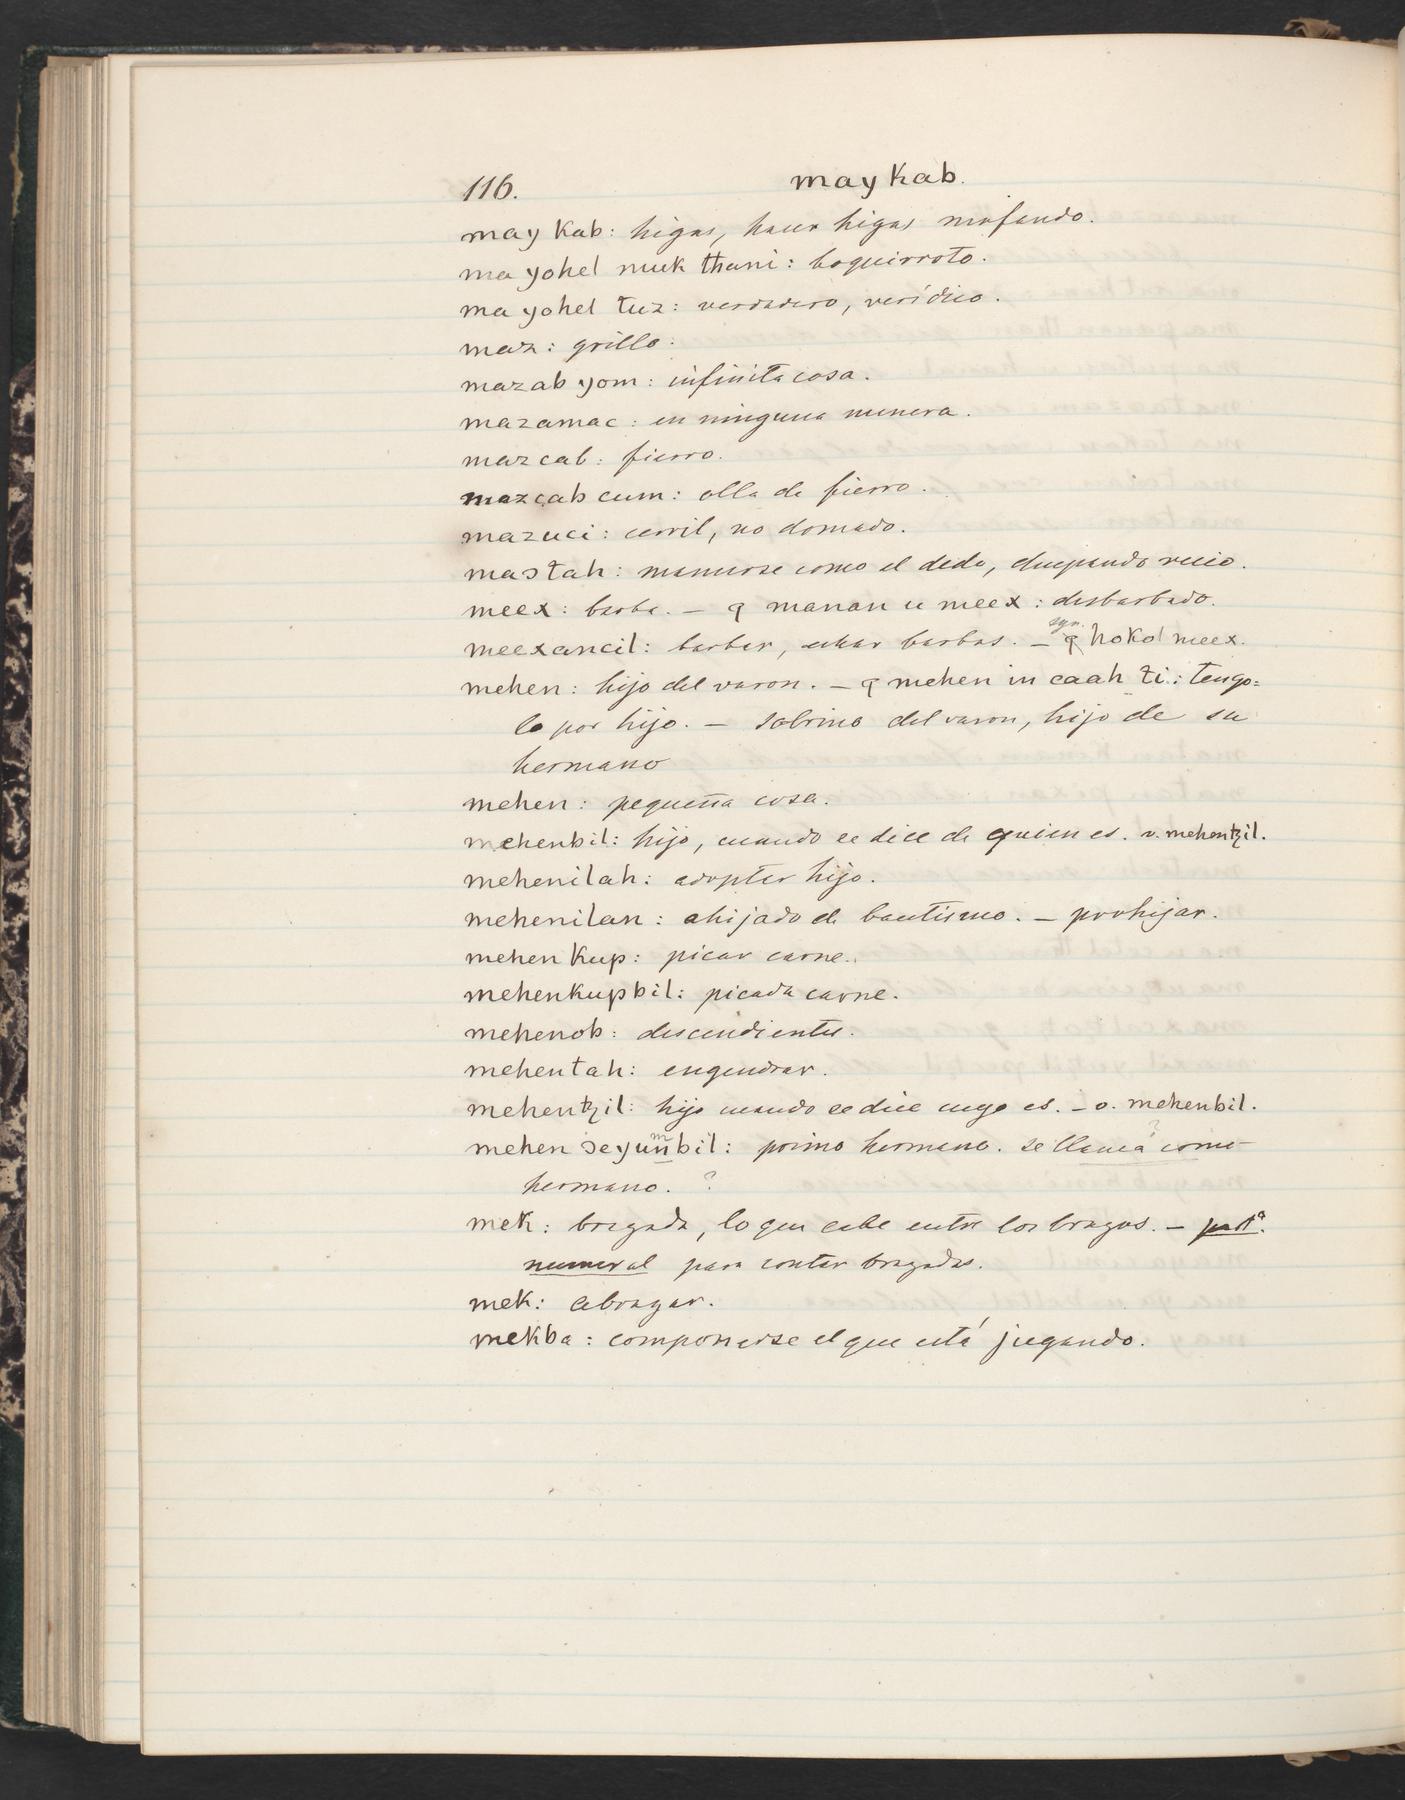 116. may kab.
may kab: higas, hacer higas mofando.
ma yohel muk thani: boquirroto.
ma yohel tuz: verdadero, verídico.
maz: grillo.
mazab yom: infinita cosa.
mazamac: en ninguna manera.
mazcab: fierro.
mazcab cum: olla de fierro.
mazuci: cerril, no domado.
mastah: mamarse como el dedo, chupando recio.
meex: barba. — q manan u meex: desbarbado.
meexancil: barbar, echar barbas. — syn. q hokol meex.
mehen: hijo del varon. — q mehen in caah ti: tengo=
lo por hijo. — sobrino del varon, hijo de su
hermano
mehen: pequeña cosa.
mehenbil: hijo, cuando se dice de quien es. v. mehentzil.
mehenilah: adoptar hijo.
mehenilan: ahijado de bautismo. — prohijar.
mehen kup: picar carne.
mehenkupbil: picada carne.
mehenob: descendientes.
mehentah: engendrar.
mehentzil: hijo cuando se dice cuyo es. — v. mehenbil.
mehen ɔeyumbil: primo hermano. se llama como
hermano. ?
mek: brazada, lo que cabe entre los brazos. — parta.
numeral para contar brazadas.
mek: abrazar.
mekba: componerse el que está jugando.